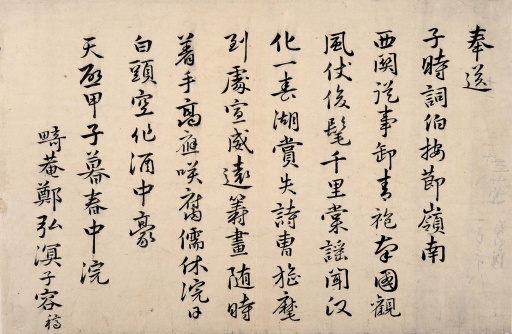 奉送
子時詞伯按節嶺南
西關從事卸青袍南國觀
風仗俊髦千里棠謠聞
化一春湖賞失詩曹旌麾
到處宣威遠籌畫隨時
着手高應咲腐儒休浣日
白頭空作酒中豪
天啓甲子暮春中浣
畸菴鄭弘溟子容稿